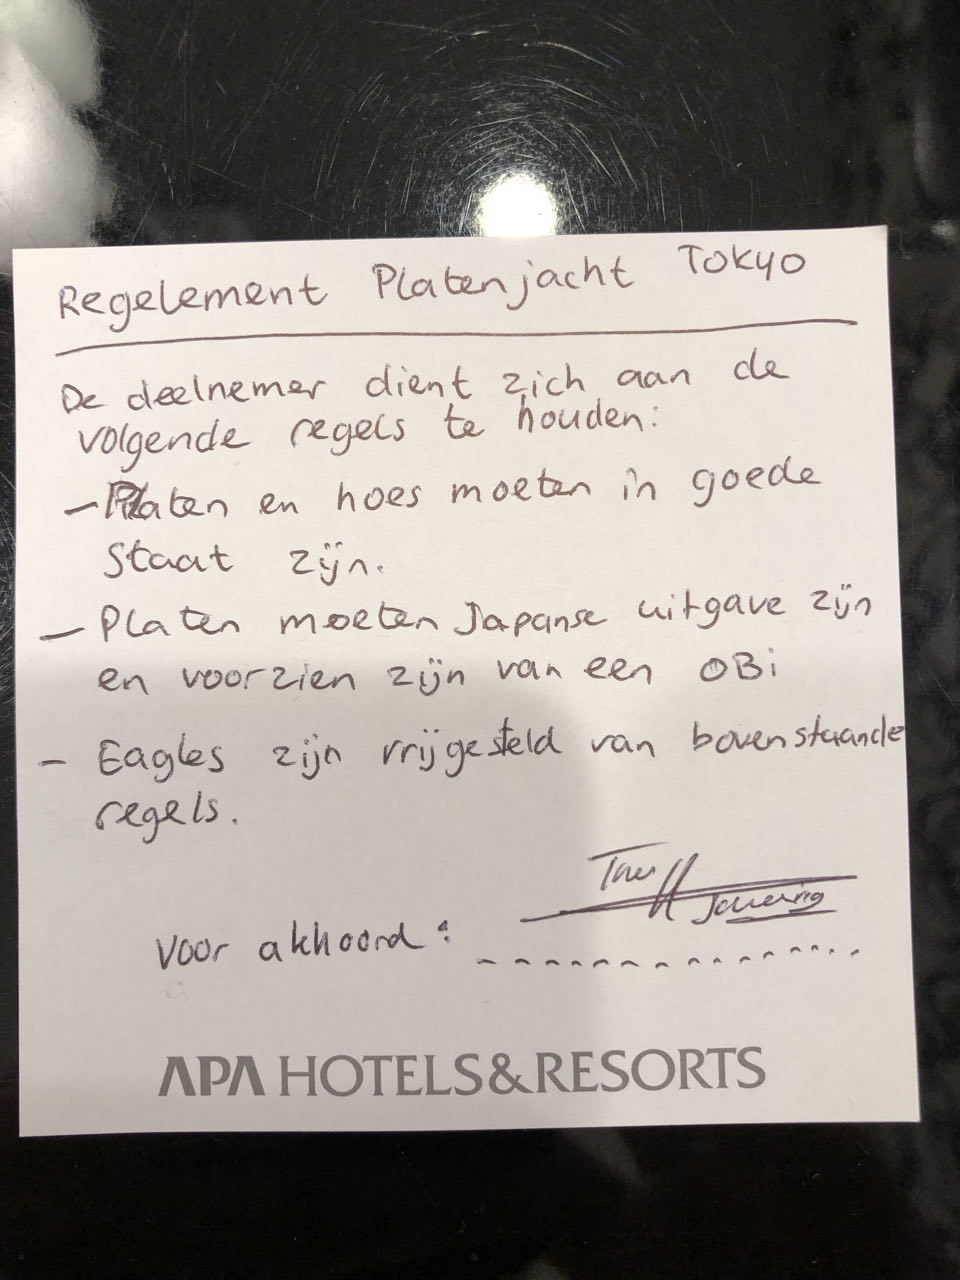 Regelement Platenjacht Tokyo
De deelnemer dient zich aan de
volgende regels te houden:
- Platen en hoes moeten in goede
staat zijn.
- Platen moeten Japanse uitgave zijn
en voorzien zijn van een OBi
- Eagles zijn vrijgesteld van bovenstaande
regels.
voor akkoord:
APA HOTELS&RESORTS